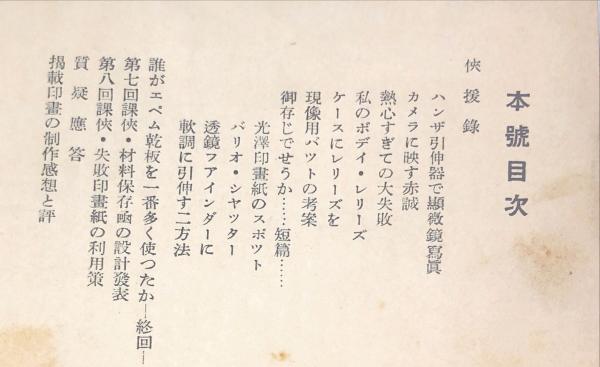 本號目次
俠援錄
ハンザ引伸器で顯微鏡寫眞
カメラに映す赤誠
熱心すぎての大失敗
私のボデイ・レリーズ
ケースにレリーズを
現像用バツトの考案
御存じでせうか……短篇……
光澤印畫紙のスポツト
バリオ・シヤツター
透鏡フアインダーに
軟調に引伸す二方法
誰がエペム乾板を一番多く使つたか―終回―
第七回課俠・材料保存凾の設計發表
第八回課俠・失敗印畫紙の利用策
質疑應答
揭載印畫の制作感想と評